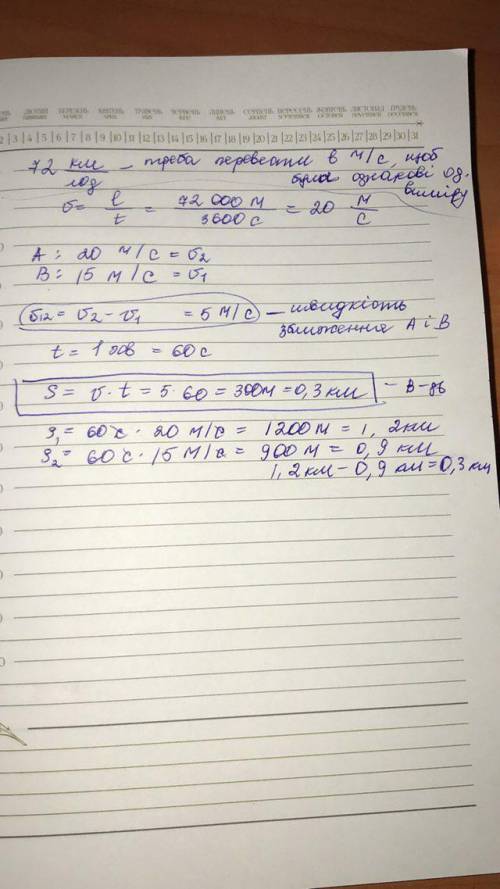 СІЧЕНЬ ЛЮТИЙ БЕРЕЗЕНЬ КВІТЕНЬ ТРАВЕНЬ ЧЕРВЕНЬ ЛИПЕНЬ СЕРПЕНЬ ВЕРЕСЕНЬ ЖОВТЕНЬ ЛИСТОПАД ГРУДЕНЬ
2 | 3 | 4 | 5 | 6 | 7 | 8 | 9 | 10 | 11 | 12 | 13 | 14 | 15 | 16 | 17 | 18 | 19 | 20 | 21 | 22 | 23 | 24 | 25 | 26 | 27 | 28 | 29 | 30 | 31
72 км/год – треба перевести в м/с, щоб
були однакові од.
виміру
v = l/t = 72 000 м/3600 с = 20 м/с
A: 20 м/с = v2
B: 15 м/с = v1
v12 = v2 - v1 = 5 м/с – швидкість
зближення A і B
t = 1 хв = 60 с
S = v · t = 5 · 60 = 300м = 0,3 км – В-дь
S1 = 60 с · 20 м/с = 1200 м = 1,2 км
S2 = 60 с · 15 м/с = 900 м = 0,9 км
1,2 км - 0,9 км = 0,3 км